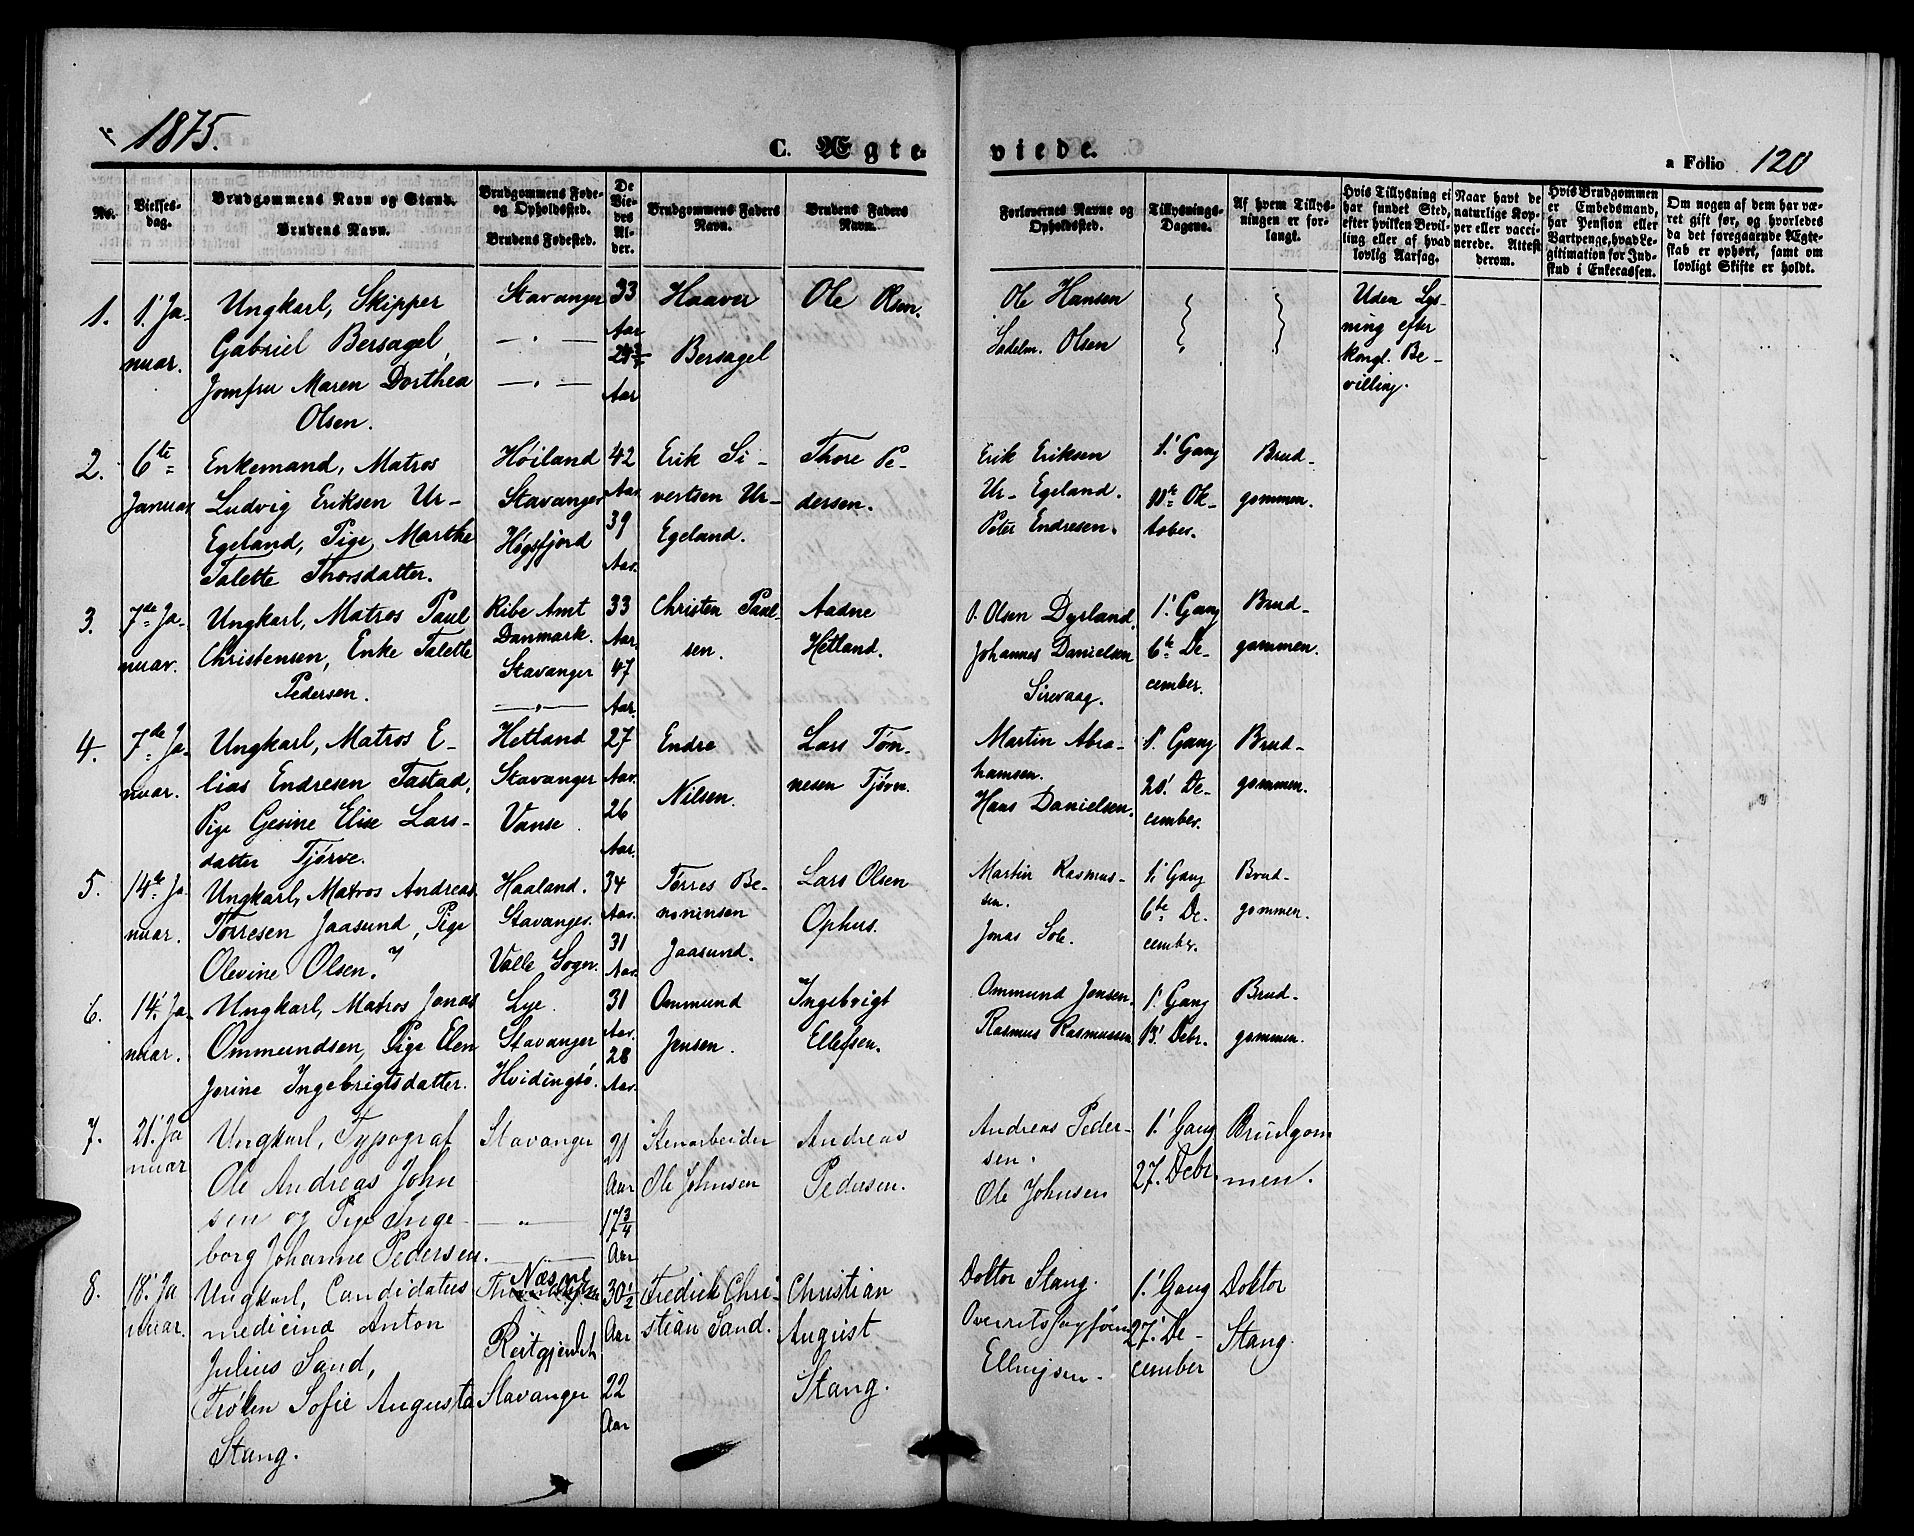 1875.
C. Ægte-
viede.
a Folio 120
No.
Vielses-
dag.
Brudgommens Navn og Stand.
Brudens Navn.
Brudgommens Føde-
og Opholdssted.
Brudens Fødested.
De
Vie-
des
Al-
der.
Brudgommens Faders
Navn.
Brudens Faders
Navn.
Forlovernes Navne og
Opholdssted.
Tillysnings-
Dagene.
Af hvem Tillys-
ningen er for-
langt.
Hvis Tillysning ei
har fundet Sted,
efter hvilken Bevil-
ling eller af hvad
lovlig Aarsag.
Naar havt de
naturlige Kop-
per eller vacci-
nerede. Attest
derom.
Hvis Brudgommen
er Embedsmand,
har Pension eller
Vartpenge, hvad Le-
gitimation for Ind-
skud i Enkecassen.
Om nogen af dem har væ-
ret gift før, og hvorledes
da det foregaaende Ægte-
skab er ophørt, samt om
lovligt Skifte er holdt.
1.
1' Ja-
nuar.
Ungkarl, Skipper
Gabriel Bersagel,
Jomfru Maren Dorthea
Olsen.
Stavanger
— " —
— " —
33
Aar
Aar
Haaver
Bersagel
Ole Olsen.
Ole Hansen
Sadelm. Olsen
Uden Lys-
ning efter
kongl. Be-
villing.
2.
6te
Januar
Enkemand, Matros
Ludvig Eriksen Ur-
Egeland, Pige Marthe
Talette Thorsdatter.
Høiland
Stavanger
Høgsfjord
42
Aar.
39
Aar.
Erik Si-
vertsen Ur-
Egeland.
Thore Pe-
dersen.
Erik Eriksen
Ur-Egeland.
Peter Endresen.
1' Gang
Ok-
tober.
Brud-
gommen.
3.
7de Ja-
nuar.
Ungkarl, Matros Paul
Christensen, Enke Talette
Pedersen.
Ribe Amt
Danmark.
Stavanger
— " —
33
Aar.
47
Aar.
Christen Paul-
sen.
Aadne
Hetland.
O. Olsen Dyrland,
Johannes Danielsen
Sirevaag.
1' Gang
6te De-
cember.
Brud-
gommen.
4.
7de Ja-
nuar.
Ungkarl, Matros E-
lias Endresen Tastad,
Pige Gesine Elise Lars-
datter Tjørve.
Hetland
Stavanger
Vanse
27
Aar.
26
Aar.
Endre
Nilsen.
Lars Tøn-
nesen Tjørn.
Martin Abra-
hamsen.
Hans Danielsen.
1' Gang
20' De-
cember.
Brud-
gommen.
5.
14de Ja-
nuar.
Ungkarl, Matros Andreas
Tørresen Jaasund, Pige
Olevine Olsen.
Haaland.
Stavanger.
Valle Sogn.
34
Aar.
31
Aar.
Tørres Be-
noninsen
Jaasund.
Lars Olsen
Ophus.
Martin Rasmus-
sen.
Jonas Sole.
1' Gang
6te De-
cember.
Brud-
gommen.
6.
14' Ja-
nuar.
Ungkarl, Matros Jonas
Ommundsen, Pige Elen
Jorine Ingebrigtsdatter.
Lye.
Stavanger
Hvidingsø.
31
Aar.
28
Aar.
Ommund
Jensen.
Ingebrigt
Ellefsen.
Ommund Jensen.
Rasmus Rasmussen
1' Gang
13' Debr.
Brud-
gommen.
7.
21' Ja
nuar
Ungkarl, Typograf
Ole Andreas John
sen og Pige Inge-
borg Johanne Pedersen.
Stavanger
— " —
21
Aar
17 3/4
Aar
Stenarbeider
Ole Johnsen
Andreas
Pedersen.
Andreas Peder-
sen.
Ole Johnsen
1' Gang
27. Debr.
Brudgom
men.
8.
18' Ja
nuar.
Ungkarl, Candidatus
medicinæ Anton
Julius Sand,
Frøken Sofie Augusta
Stang.
Næs
Stavanger
30 1/2
Aar
22
Aar
Fredrik Chri-
stian Sand.
Christian
August
Stang.
Doktor Stang.
Ellingsen.
1' Gang
27' De-
cember
Doktor
Stang.